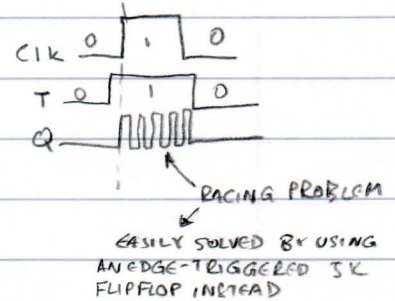 Clk 0 1 0
T 0 1 0
Q
RACING PROBLEM
EASILY SOLVED BY USING
AN EDGE-TRIGGERED JK
FLIPFLOP INSTEAD